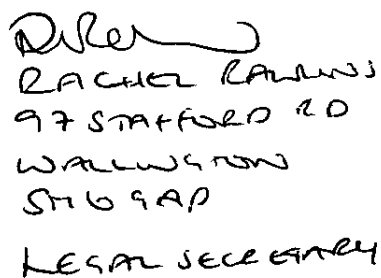 RACHEL RAWLINS
97 STAFFORD RD
WALLINGTON
SM6 9AP
LEGAL SECRETARY